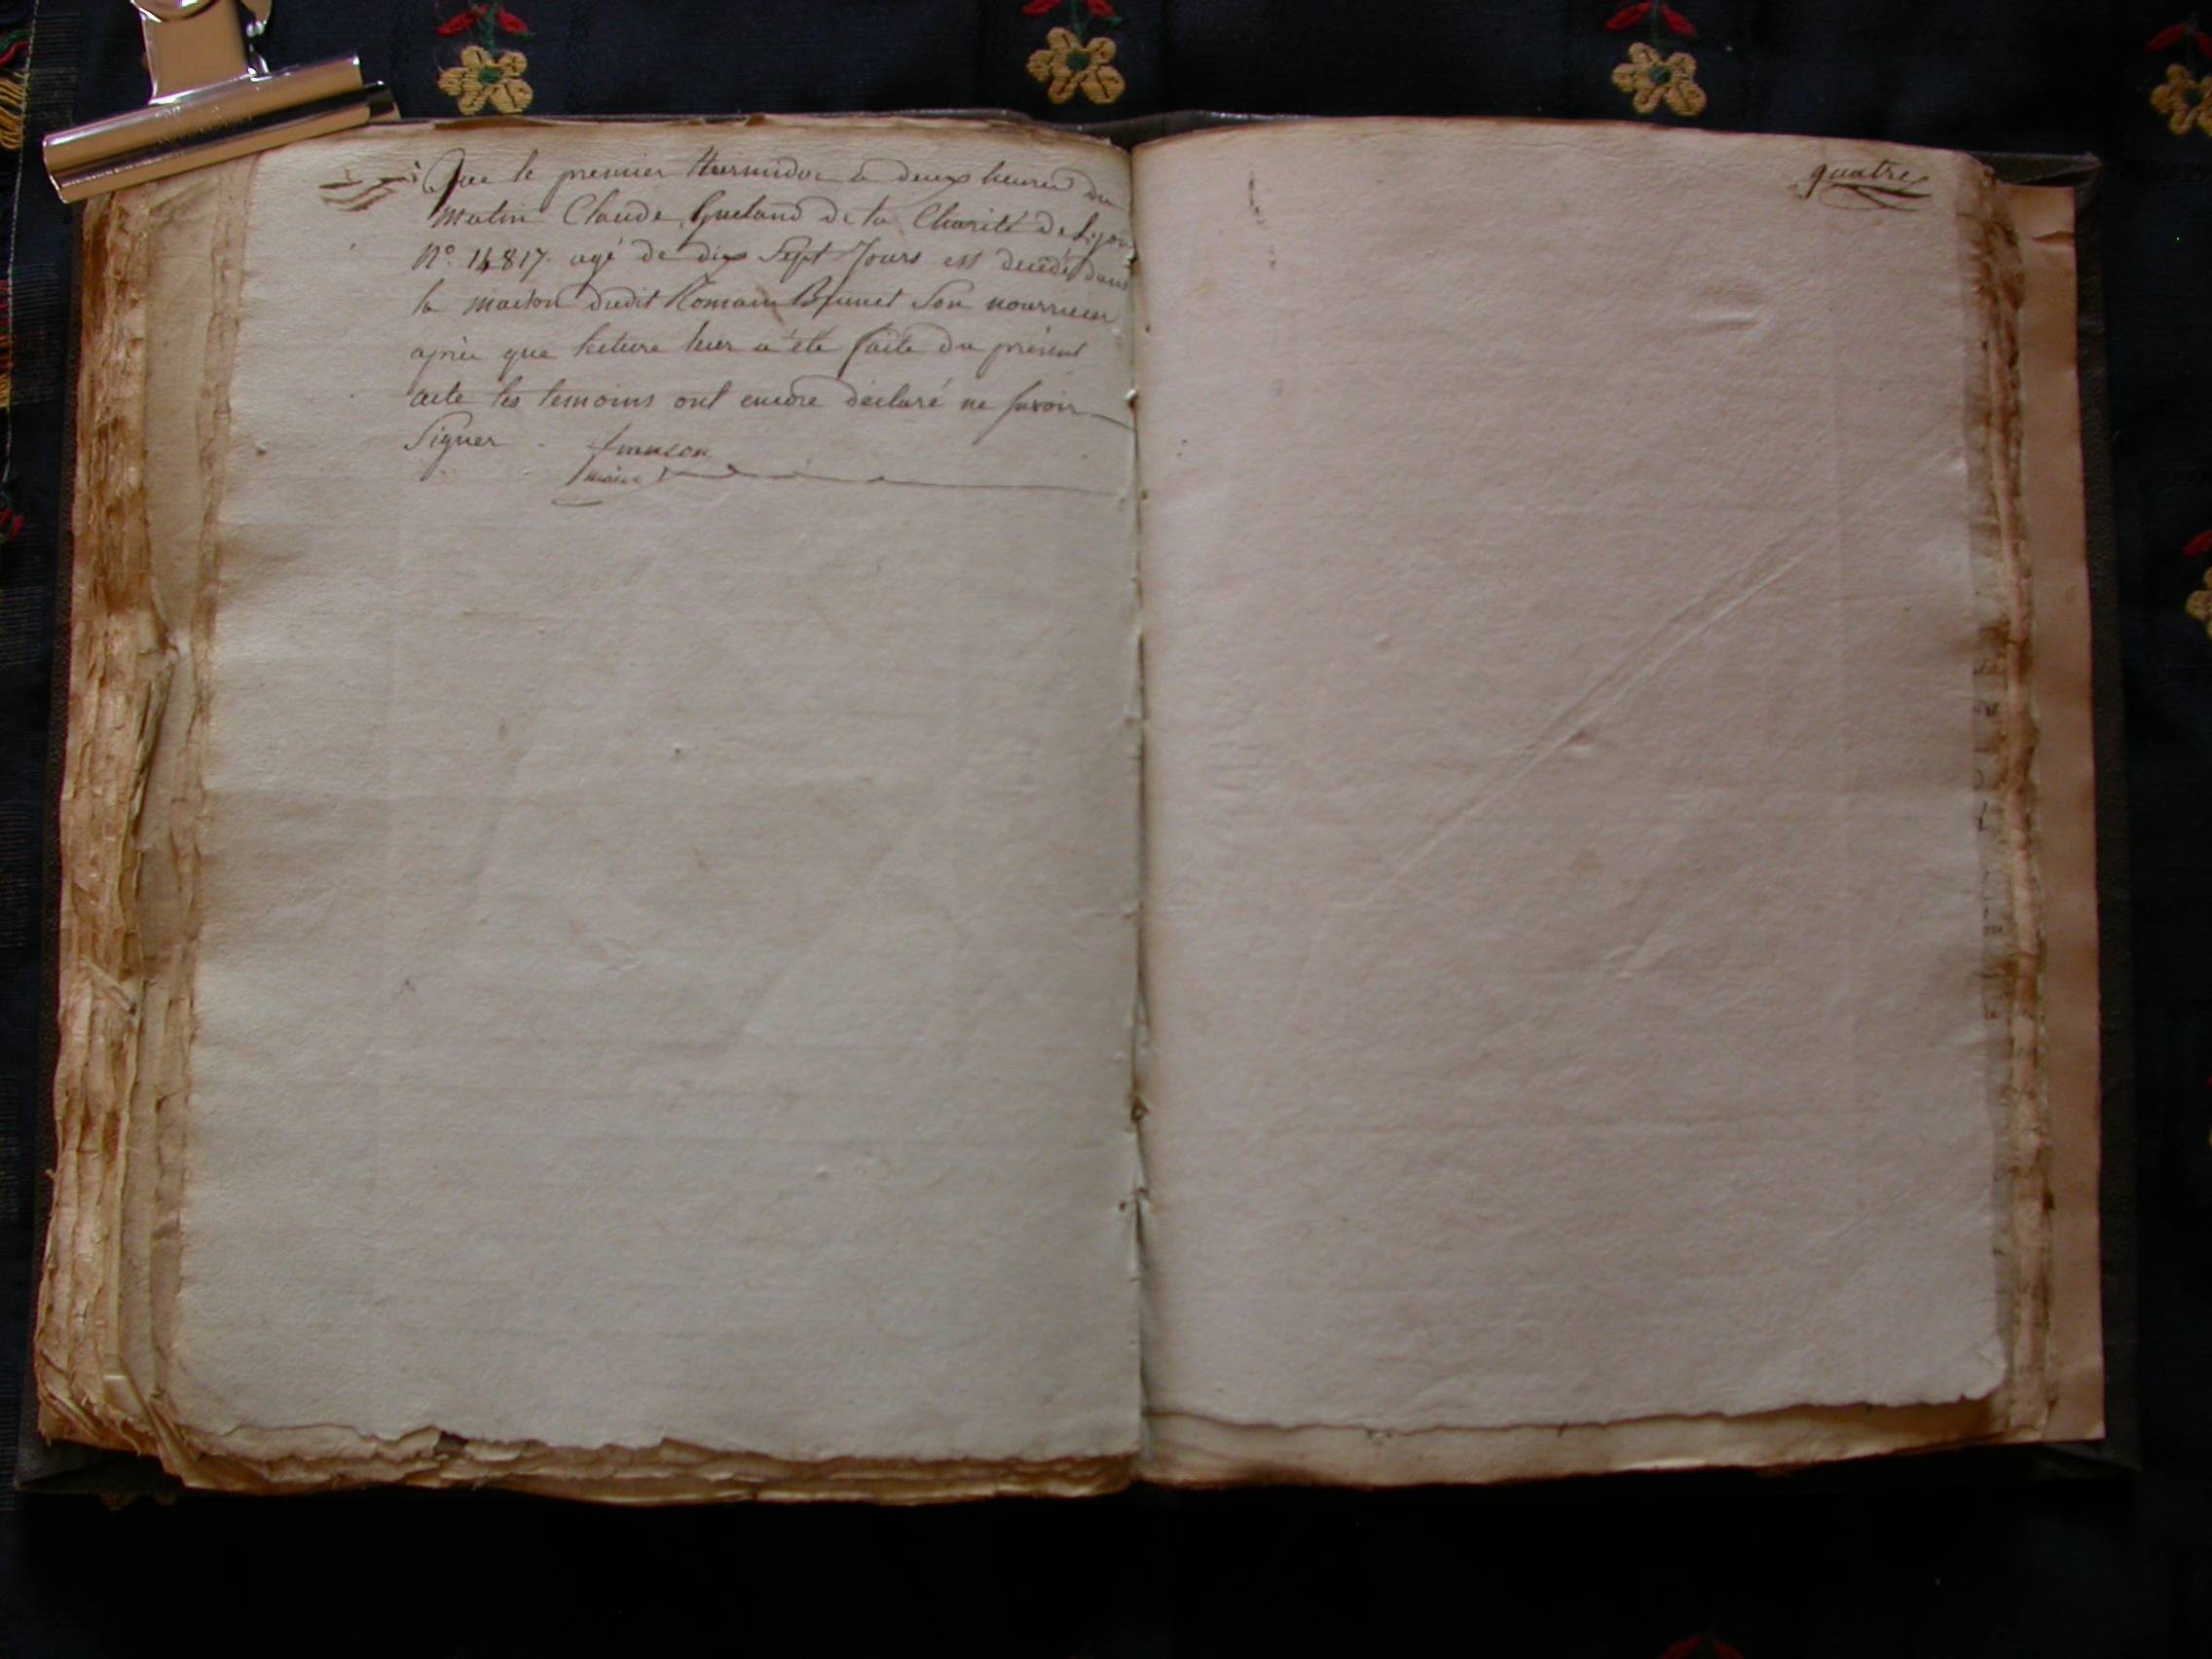 Que le premier thermidor a deux heures du
matin Claude Gueland de la Charité de Lyon
N° 14817 agé de dix Sept Jours est decédé dans
la maison dudit Romain Brunet Son nourricier
après que lecture leur a été faite du présent
acte les temoins ont encore déclaré ne savoir
Signer
maire
quatre